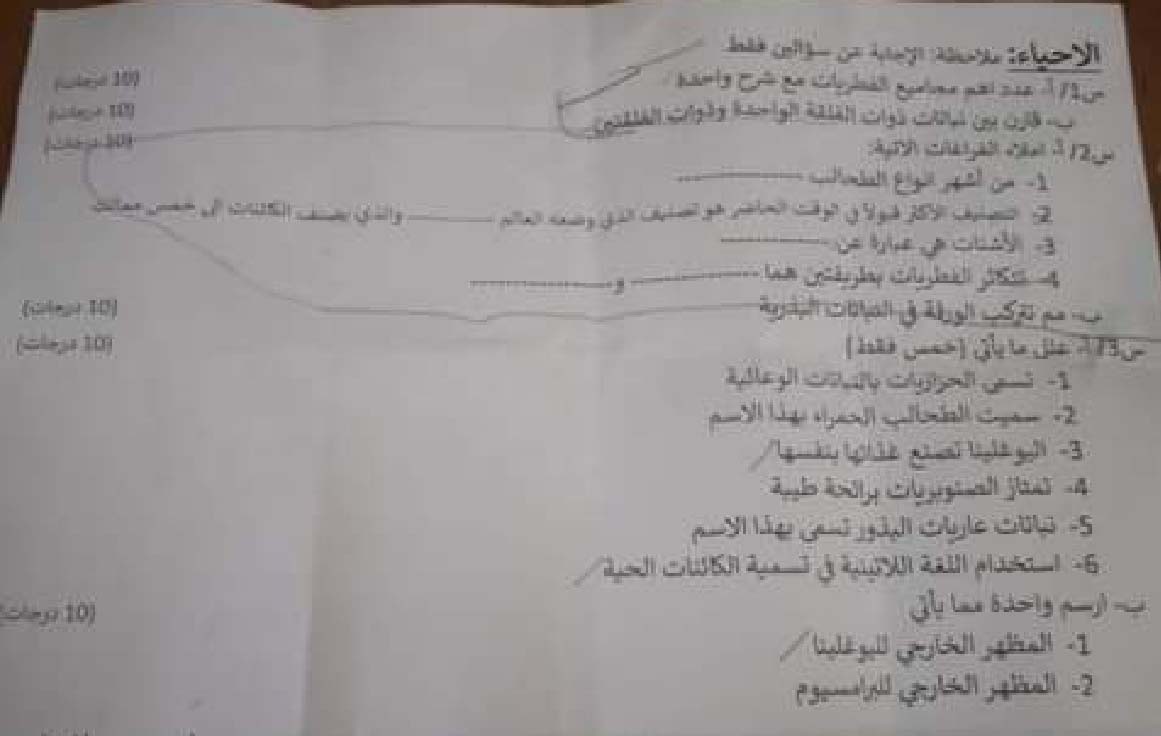 الاحياء: ملاحظة: الإجابة عن سؤالين فقط
س1/ أ- عدد اهم مجاميع الفطريات مع شرح واحدة (10 درجات)
ب- قارن بين نباتات ذوات الفلقة الواحدة وذوات الفلقتين (10 درجات)
س2/ أ- املاء الفراغات الاتية: (10 درجات)
1- من أشهر انواع الطحالب ............
2- التصنيف الأكثر قبولاً في الوقت الحاضر هو تصنيف الذي وضعه العالم ............ والذي يصنف الكائنات الى خمس ممالك
3- الأشنات هي عبارة عن ............
4- تتكاثر الفطريات بطريقتين هما ............ و ............
ب- مم تتركب الورقة في النباتات البذرية (10 درجات)
س3/ أ- علل ما يأتي (خمس فقط) (10 درجات)
1- تسمى الحزازيات بالنباتات الوعائية
2- سميت الطحالب الحمراء بهذا الاسم
3- اليوغلينا تصنع غذائها بنفسها
4- تمتاز الصنوبريات برائحة طيبة
5- نباتات عاريات البذور تسمى بهذا الاسم
6- استخدام اللغة اللاتينية في تسمية الكائنات الحية
ب- ارسم واحدة مما يأتي (10 درجات)
1- المظهر الخارجي لليوغلينا
2- المظهر الخارجي للبرامسيوم